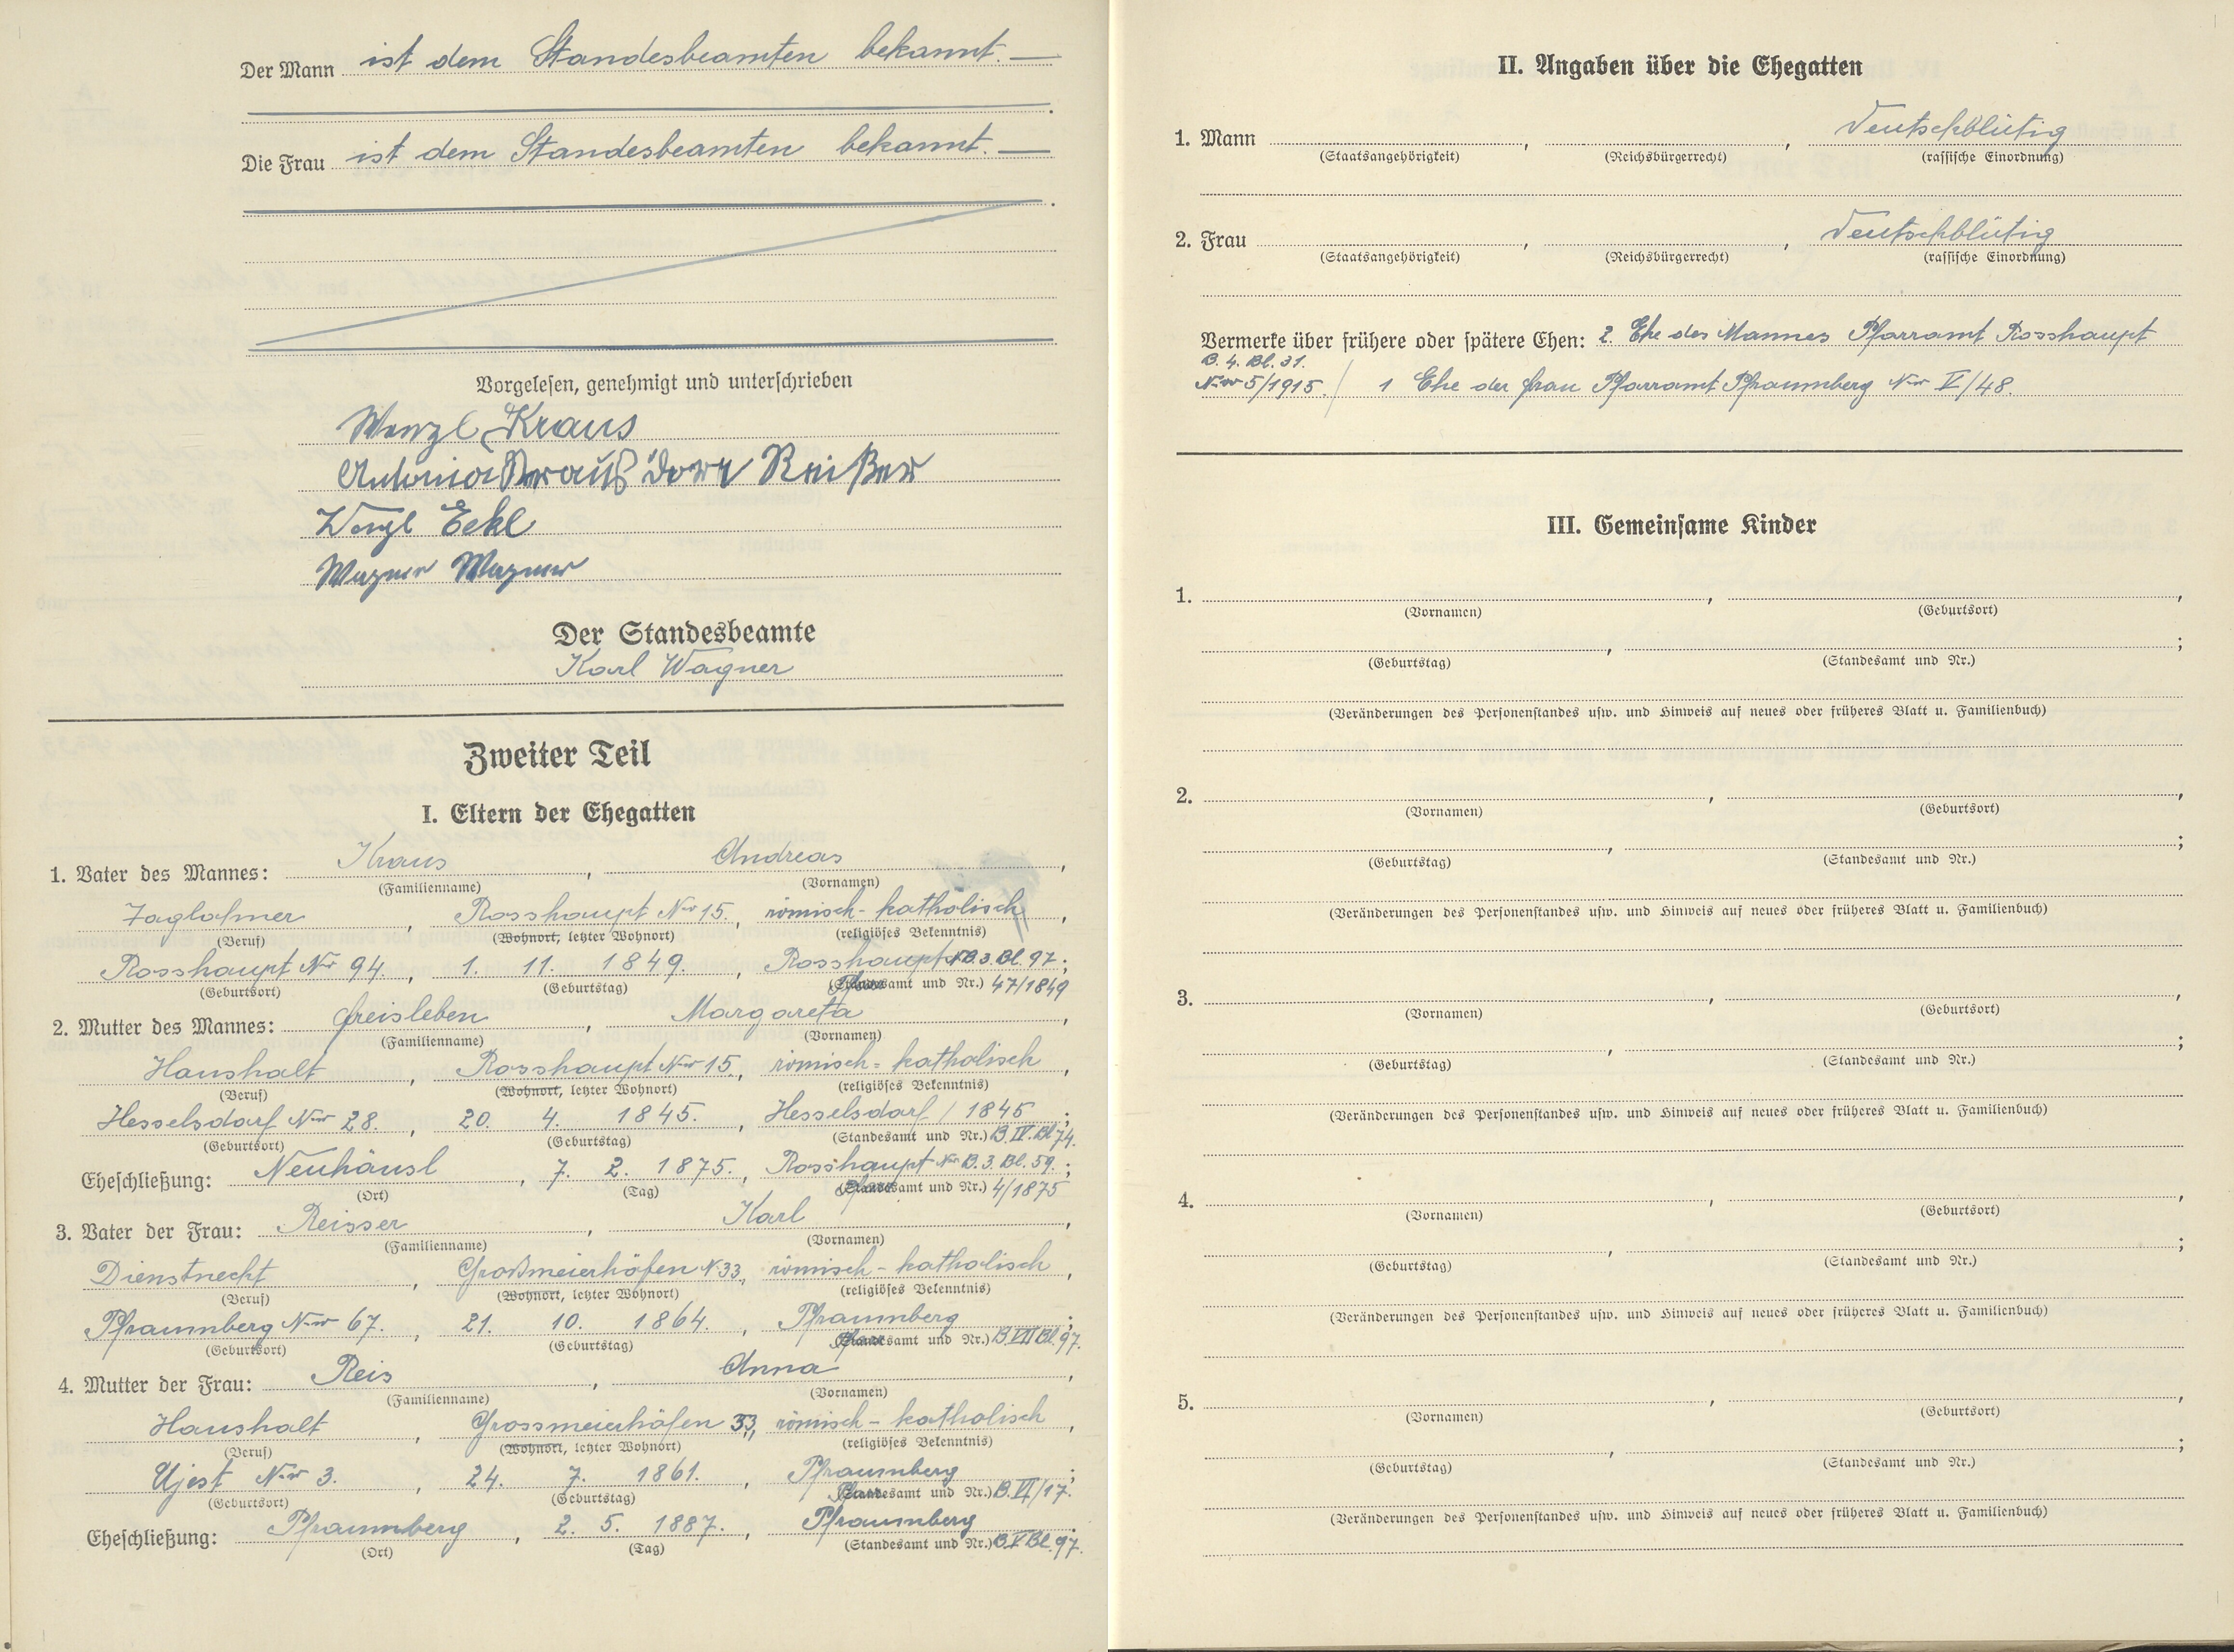 Der Mann ist dem Standesbeamten bekannt. —
Die Frau ist dem Standesbeamten bekannt. —
Vorgelesen, genehmigt und unterschrieben
Wenzl Kraus
Antonia Kraus Reißer
Wenzl Eckl
Wagner
Der Standesbeamte
Karl Wagner
Zweiter Teil
I. Eltern der Ehegatten
1. Vater des Mannes: Kraus, Andreas,
(Familienname) (Vornamen)
Taglohner, Rosshaupt Nr 15., römisch-katholisch,
(Beruf) (Wohnort, letzter Wohnort) (religiöses Bekenntnis)
Rosshaupt Nr 94., 1. 11. 1849., Rosshaupt B.3. Bl. 97.;
(Geburtsort) (Geburtstag) (Pfarramt und Nr.) 47/1849
2. Mutter des Mannes: Greisleben, Margareta,
(Familienname) (Vornamen)
Haushalt, Rosshaupt Nr 15., römisch-katholisch,
(Beruf) (Wohnort, letzter Wohnort) (religiöses Bekenntnis)
Hesselsdorf Nr 28., 20. 4. 1845., Hesselsdorf / 1845;
(Geburtsort) (Geburtstag) (Standesamt und Nr.) B. IV. Bl 74.
Eheschließung: Neuhäusl, 7. 2. 1875., Rosshaupt Nr B. 3. Bl. 59.;
(Ort) (Tag) (Standesamt und Nr.) 4/1875
3. Vater der Frau: Reisser, Karl,
(Familienname) (Vornamen)
Dienstnecht, Großmeierhöfen N. 33, römisch-katholisch,
(Beruf) (Wohnort, letzter Wohnort) (religiöses Bekenntnis)
Pfraumberg Nr 67., 21. 10. 1864., Pfraumberg;
(Geburtsort) (Geburtstag) (Pfarramt und Nr.) B. VII Bl. 97.
4. Mutter der Frau: Reis, Anna,
(Familienname) (Vornamen)
Haushalt, Grossmeierhöfen 33, römisch-katholisch,
(Beruf) (Wohnort, letzter Wohnort) (religiöses Bekenntnis)
Ujest Nr 3., 24. 7. 1861., Pfraumberg;
(Geburtsort) (Geburtstag) (Pfarramt und Nr.) B. VI/17.
Eheschließung: Pfraumberg, 2. 5. 1887., Pfraumberg;
(Ort) (Tag) (Standesamt und Nr.) B. V Bl. 97.
II. Angaben über die Ehegatten
1. Mann , , Deutschblütig
(Staatsangehörigkeit) (Reichsbürgerrecht) (rassische Einordnung)
2. Frau , , Deutschblütig
(Staatsangehörigkeit) (Reichsbürgerrecht) (rassische Einordnung)
Vermerke über frühere oder spätere Ehen: 2. Ehe des Mannes Pfarramt Rosshaupt
B. 4. Bl. 31.
Nr 5/1915. / 1 Ehe der Frau Pfarramt Pfraumberg Nr V/48.
III. Gemeinsame Kinder
1. , ,
(Vornamen) (Geburtsort)
, ;
(Geburtstag) (Standesamt und Nr.)
(Veränderungen des Personenstandes usw. und Hinweis auf neues oder früheres Blatt u. Familienbuch)
2. , ,
(Vornamen) (Geburtsort)
, ;
(Geburtstag) (Standesamt und Nr.)
(Veränderungen des Personenstandes usw. und Hinweis auf neues oder früheres Blatt u. Familienbuch)
3. , ,
(Vornamen) (Geburtsort)
, ;
(Geburtstag) (Standesamt und Nr.)
(Veränderungen des Personenstandes usw. und Hinweis auf neues oder früheres Blatt u. Familienbuch)
4. , ,
(Vornamen) (Geburtsort)
, ;
(Geburtstag) (Standesamt und Nr.)
(Veränderungen des Personenstandes usw. und Hinweis auf neues oder früheres Blatt u. Familienbuch)
5. , ,
(Vornamen) (Geburtsort)
, ;
(Geburtstag) (Standesamt und Nr.)
(Veränderungen des Personenstandes usw. und Hinweis auf neues oder früheres Blatt u. Familienbuch)